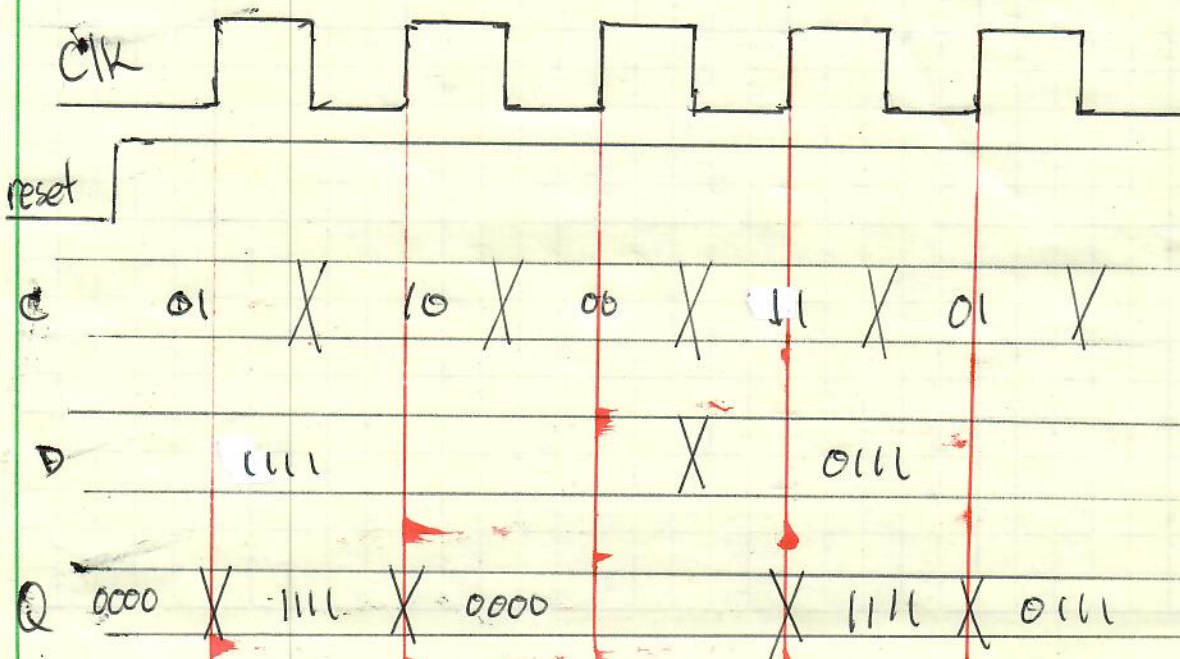 Clk
reset
C 01 10 00 11 01
D 1111 0111
Q 0000 1111 0000 1111 0111